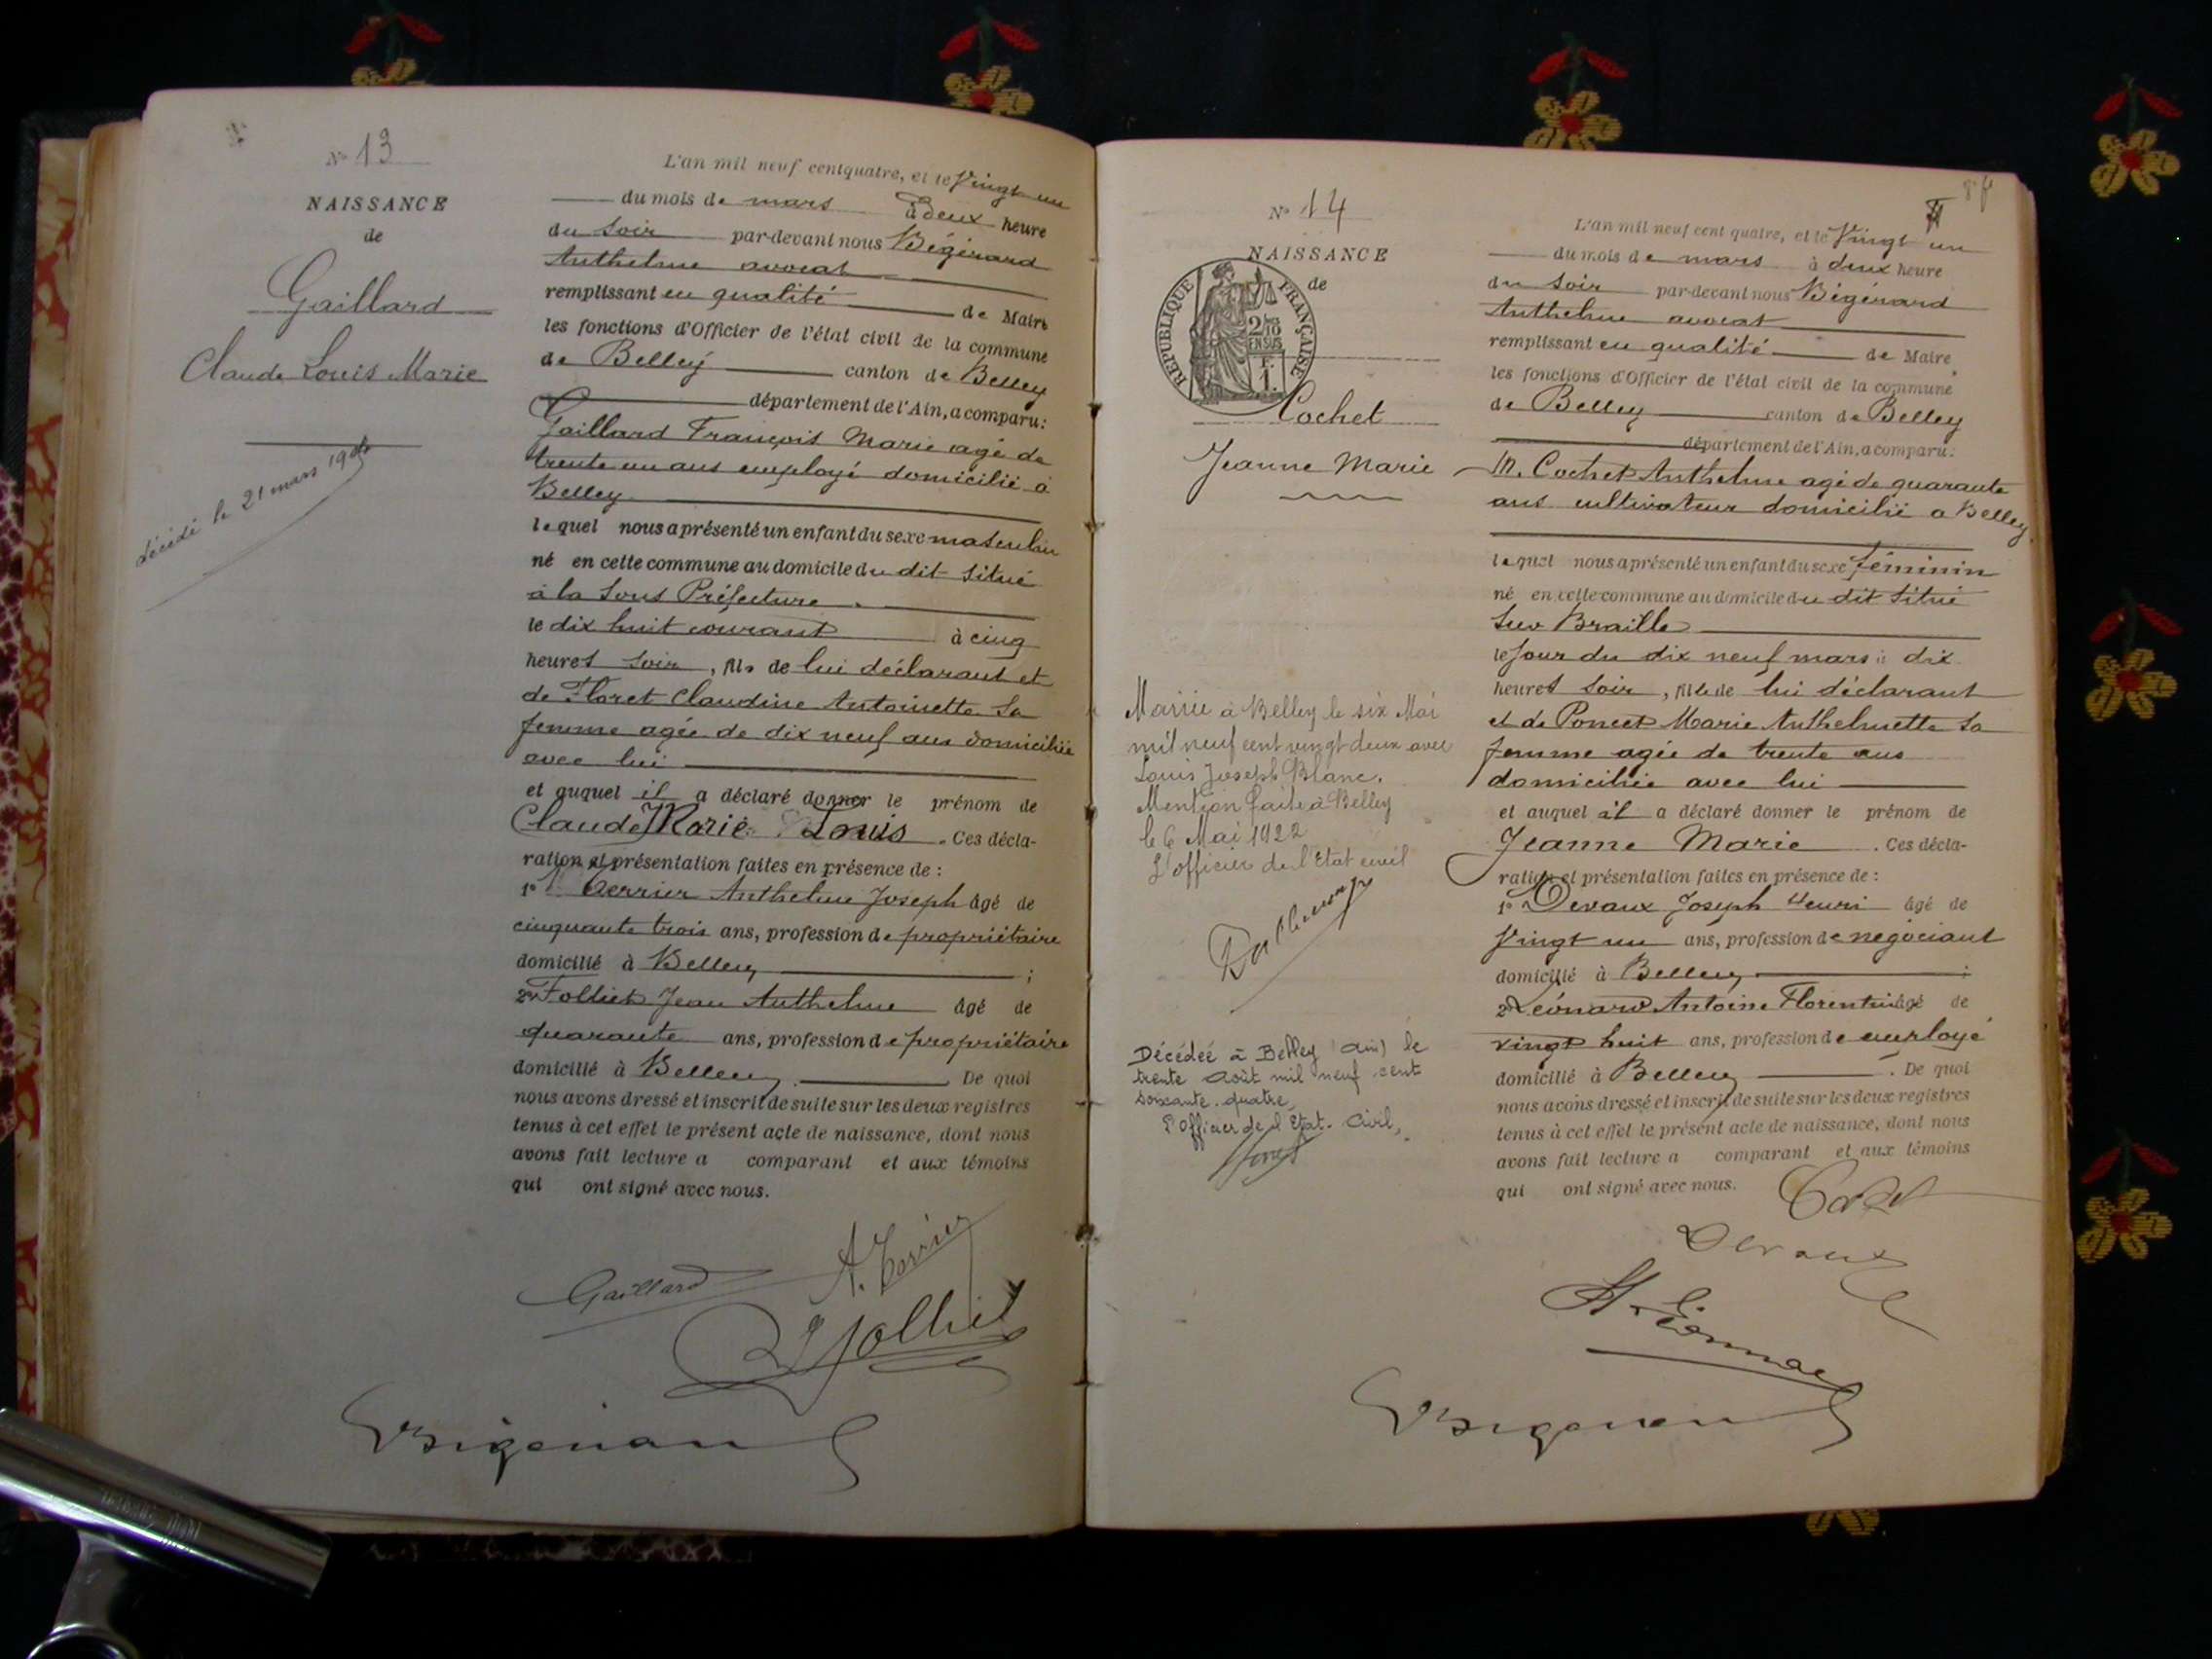 N° 13
NAISSANCE
de
Gaillard
Claude Louis Marie
décédé le 21 mars
L'an mil neuf cent quatre, et le Vingt un
du mois de mars à deux heure
du Soir par-devant nous Bigérard
Anthelme avocat
remplissant en qualité de Maire
les fonctions d'Officier de l'état civil de la commune
de Belley canton de Belley
département de l'Ain, a comparu:
Gaillard François Marie agé de
trente un ans employé domicilié à
Belley
lequel nous a présenté un enfant du sexe masculin
né en cette commune au domicile du dit situé
à la Sous Préfecture
le dix huit courant à cinq
heures soir, fils de lui déclarant et
de Floret Claudine Antoinette sa
femme agée de dix neuf ans domiciliée
avec lui
et auquel il a déclaré donner le prénom de
Claude Marie Louis. Ces décla-
ration et présentation faites en présence de:
1° Terrier Anthelme Joseph âgé de
cinquante trois ans, profession de propriétaire
domicilié à Belley;
2° Folliet Jean Anthelme âgé de
quarante ans, profession de propriétaire
domicilié à Belley. De quoi
nous avons dressé et inscrit de suite sur les deux registres
tenus à cet effet le présent acte de naissance, dont nous
avons fait lecture a comparant et aux témoins
qui ont signé avec nous.
Gaillard A. Terrier
Folliet
Bigérard
N° 14
NAISSANCE
de
REPUBLIQUE FRANÇAISE
2/10
EN SUS
F.
1.
Cochet
Jeanne Marie
Mariée à Belley le six Mai
mil neuf cent vingt deux avec
Louis Joseph Blanc.
Mention faite à Belley
le 6 Mai 1922
L'officier de l'Etat civil
Décédée à Belley (Ain) le
trente Août mil neuf cent
soixante-quatre,
l'Officier de l'Etat-Civil,
L'an mil neuf cent quatre, et le Vingt un
du mois de mars à deux heure
du Soir par-devant nous Bigérard
Anthelme avocat
remplissant en qualité de Maire
les fonctions d'Officier de l'état civil de la commune
de Belley canton de Belley
département de l'Ain, a comparu:
M. Cochet Anthelme agé de quarante
ans cultivateur domicilié a Belley
lequel nous a présenté un enfant du sexe féminin
né en cette commune au domicile du dit situé
Sur Braille
le jour du dix neuf mars à dix
heures soir, fille de lui déclarant
et de Poncet Marie Anthelmette sa
femme agée de trente ans
domiciliée avec lui
et auquel il a déclaré donner le prénom de
Jeanne Marie. Ces décla-
ration et présentation faites en présence de:
1° Devaux Joseph Henri âgé de
Vingt un ans, profession de negociant
domicilié à Belley;
2° Léonard Antoine Florentin âgé de
vingt huit ans, profession de employé
domicilié à Belley. De quoi
nous avons dressé et inscrit de suite sur les deux registres
tenus à cet effet le présent acte de naissance, dont nous
avons fait lecture a comparant et aux témoins
qui ont signé avec nous.
Cochet
Devaux
Bigérard